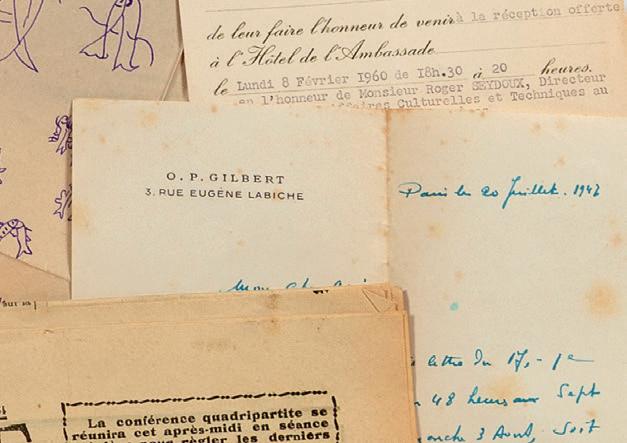 de leur faire l'honneur de venir à la réception offerte
à l'Hôtel de l'Ambassade
le Lundi 8 Février 1960 de 18h.30 à 20 heures.
en l'honneur de Monsieur Roger SEYDOUX, Directeur
Affaires Culturelles et Techniques au
O. P. GILBERT
3, RUE EUGÈNE LABICHE
Paris le 20 Juillet. 1947
Mon Cher
lettre du 17,-
48 heures Sept
3 Août, Soit
La conférence quadripartite se
réunira cet après-midi en séance
régler les derniers